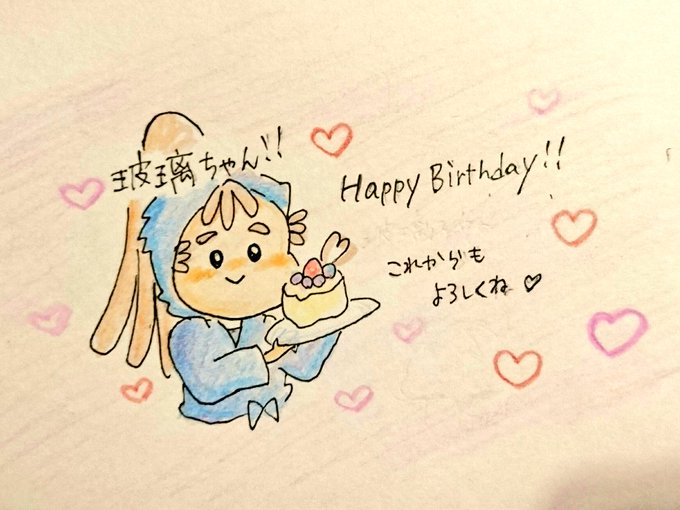 玻璃ちゃん!!
Happy Birthday!!
これからも
よろしくね♡